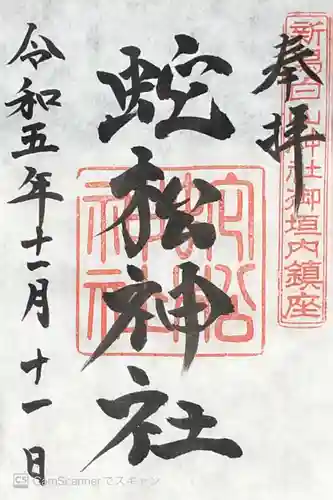 奉拝
新潟白山神社御垣内鎮座
蛇松神社
蛇松神社
令和五年十一月十一日
CS CamScannerでスキャン